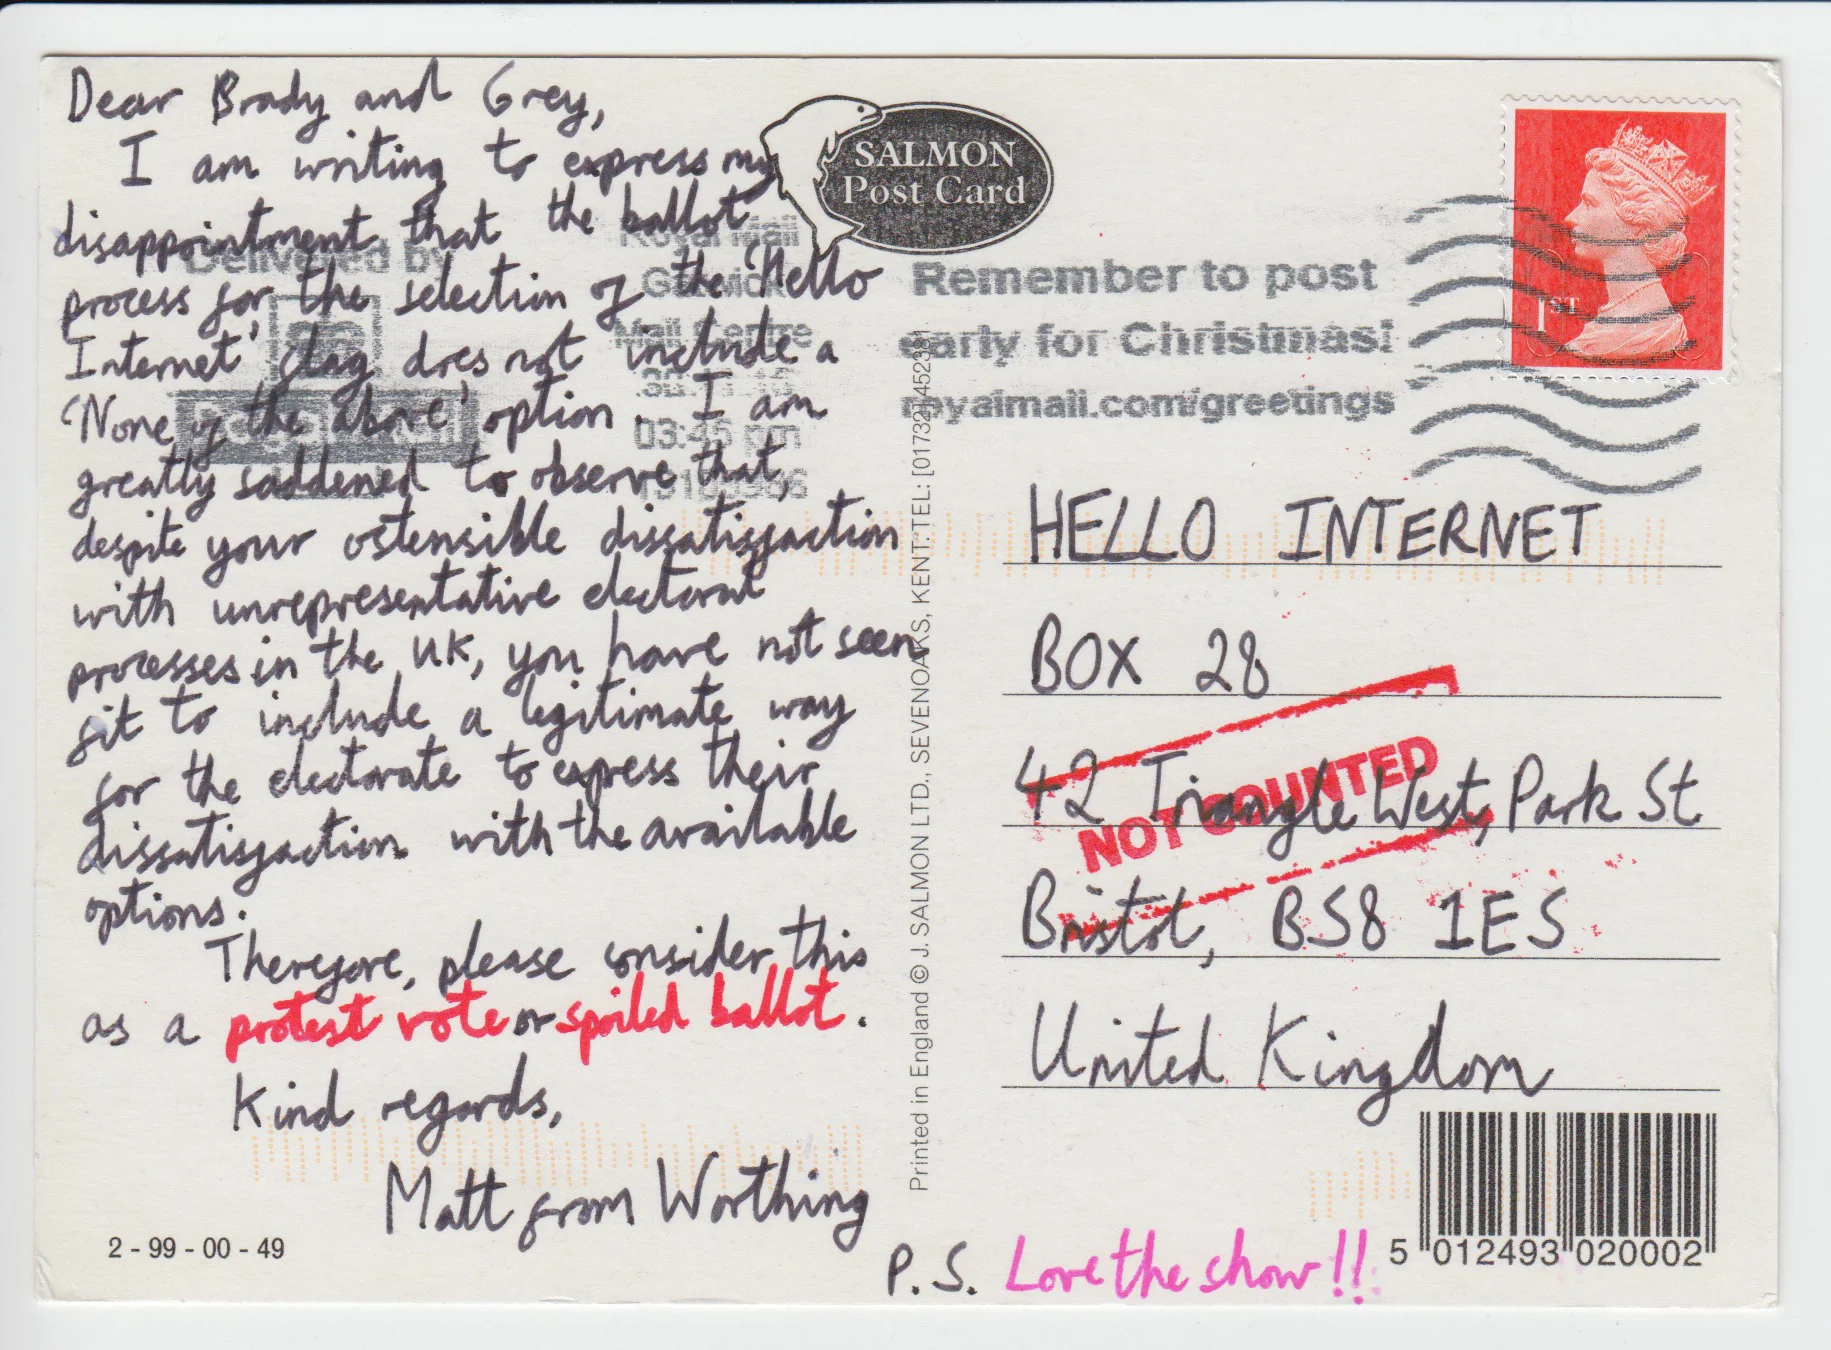 Dear Brady and Grey,
I am writing to express my
disappointment that the ballot
process for the selection of the 'Hello
Internet' flag does not include a
'None of the above' option. I am
greatly saddened to observe that,
despite your ostensible dissatisfaction
with unrepresentative electoral
processes in the UK, you have not seen
fit to include a legitimate way
for the electorate to express their
dissatisfaction with the available
options.
Therefore, please consider this
as a protest vote or spoiled ballot.
Kind regards,
Matt from Worthing
2 - 99 - 00 - 49
P.S. Love the show!!
SALMON
Post Card
Delivered by
Royal Mail
Gatwick
Mail Centre
03:46 pm
Remember to post
early for Christmas!
royalmail.com/greetings
1ST
Printed in England © J. SALMON LTD., SEVENOAKS, KENT. TEL: [01732] 452381
HELLO INTERNET
BOX 28
42 Triangle West, Park St
Bristol, BS8 1ES
United Kingdom
NOT COUNTED
5 012493 020002